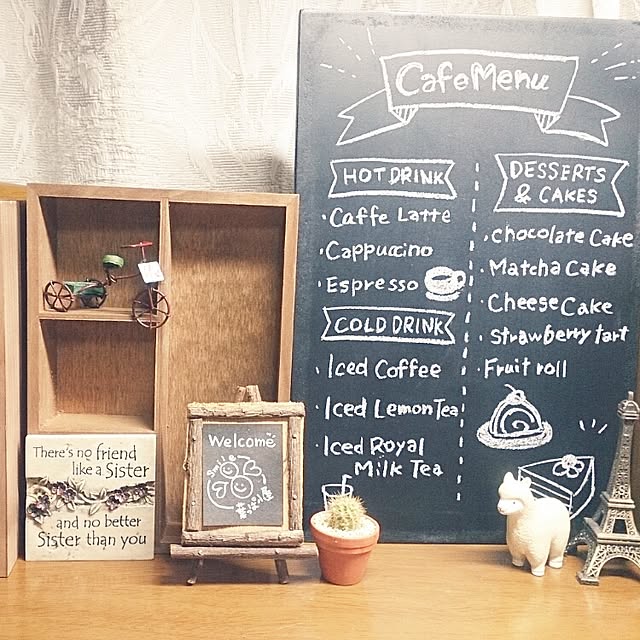 Cafe Menu
HOT DRINK
Caffe Latte
Cappuccino
Espresso
COLD DRINK
Iced Coffee
Iced Lemon Tea
Iced Royal
Milk Tea
DESSERTS
& CAKES
chocolate Cake
Matcha Cake
Cheese Cake
Strawberry tart
Fruit roll
Welcome
Smile
There's no friend
like a Sister
and no better
Sister than you